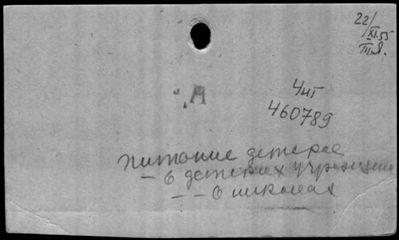 22/
XI.55
III.Я.
А
Чит
460789
питание детское
— в детских учрежден
— — в школах